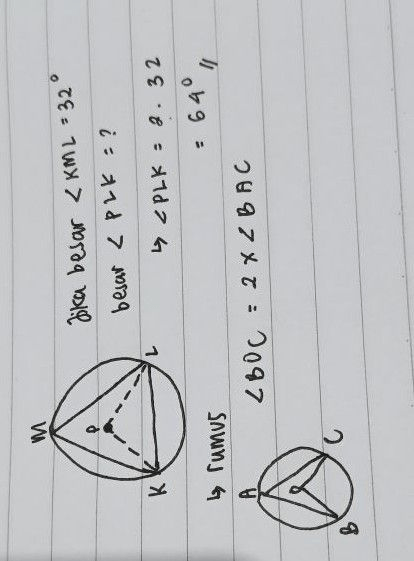 M
P
K
L
Jika besar < KML = 32°
besar < PLK = ?
↳ < PLK = 2 . 32
= 64° //
↳ rumus
A
O
B
C
∠BOC = 2 x ∠BAC